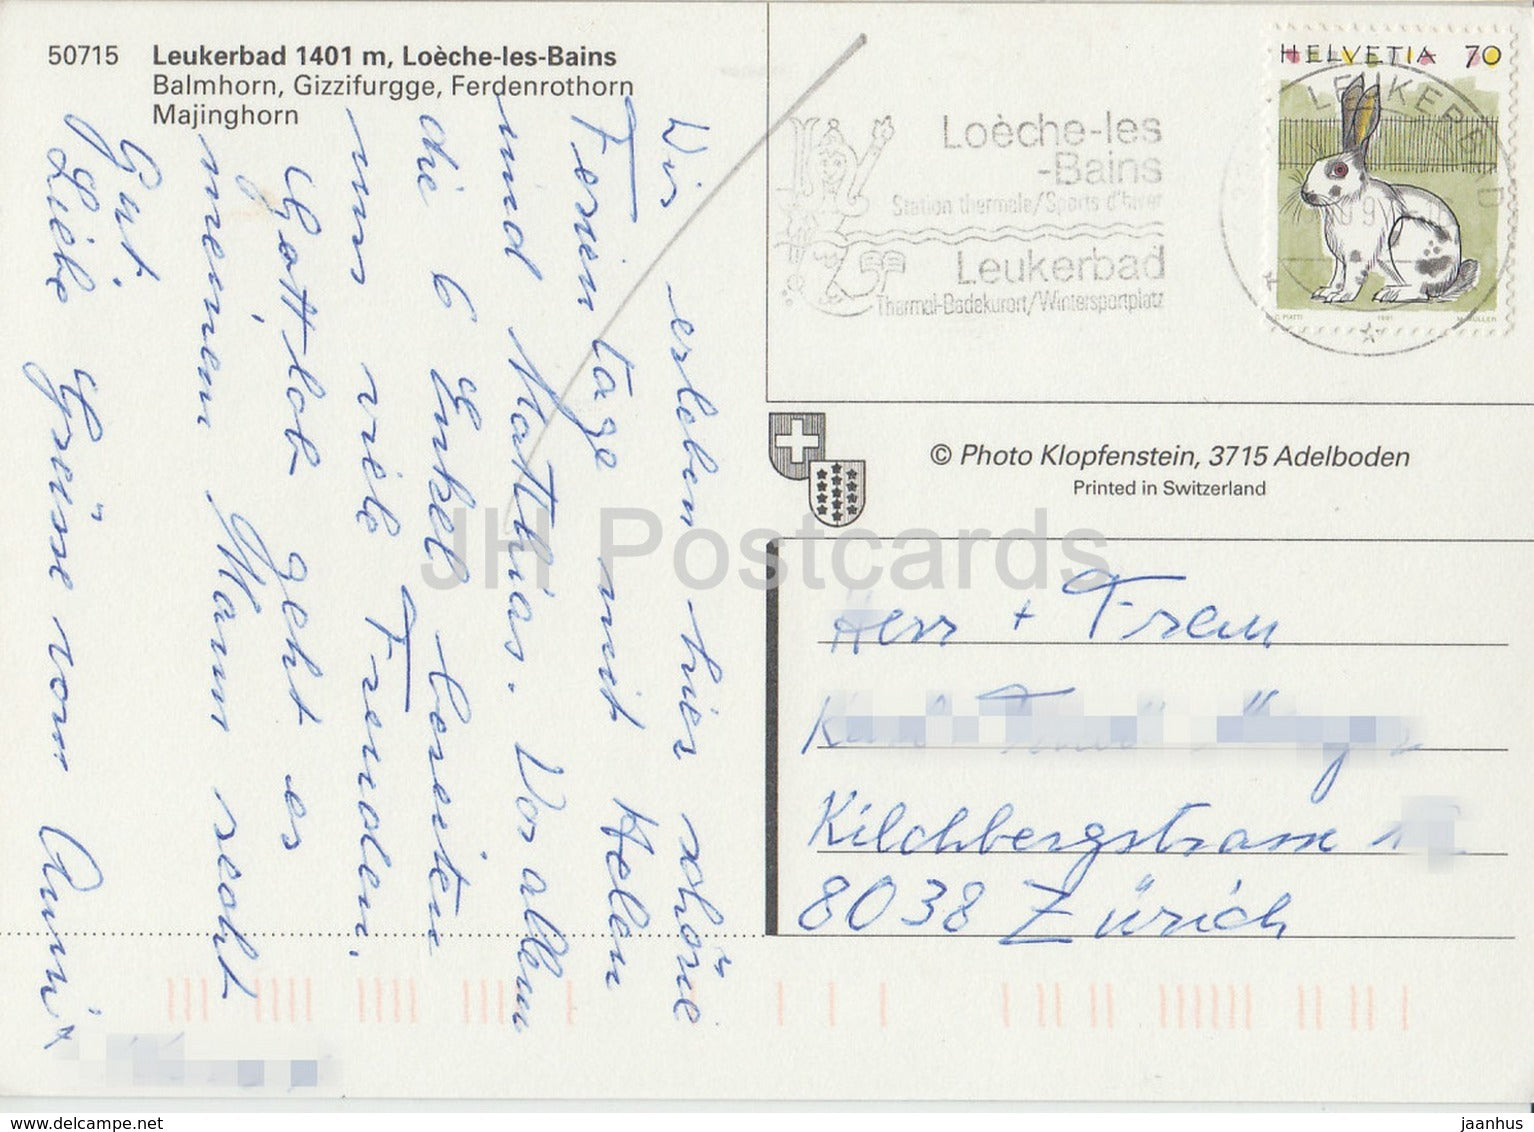 50715 Leukerbad 1401 m, Loèche-les-Bains
Balmhorn, Gizzifurgge, Ferdenrothorn
Majinghorn
Wir erleben hier schöne
Ferien tage mit Helen
und Matthias. Vor allem
die 6 Enkel bereiten
uns viele Freuden.
Gottlob geht es
meinem Mann recht
Gut.
Liebe Grüsse vom Anni
Loèche-les
-Bains
Station thermale/Sports d'hiver
Leukerbad
Thermal-Badekurort/Wintersportplatz
HELVETIA 70
LEUKERBAD
C. PIATTI 1991 M. MÜLLER
© Photo Klopfenstein, 3715 Adelboden
Printed in Switzerland
Herr + Frau
Kilchbergstrasse
8038 Zürich
JH Postcards
www.delcampe.net
jaanhus